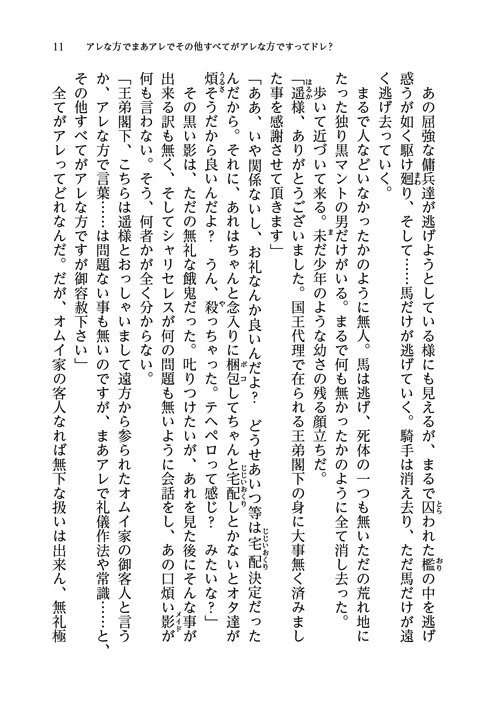 11　アレな方でまあアレでその他すべてがアレな方ですってドレ？
　あの屈強な傭兵達が逃げようとしている様にも見えるが、まるで囚われた檻の中を逃げ
惑うが如く駆け廻り、そして……馬だけが逃げていく。騎手は消え去り、ただ馬だけが遠
く逃げ去っていく。
　まるで人などいなかったかのように無人。馬は逃げ、死体の一つも無いただの荒れ地に
たった独り黒マントの男だけがいる。まるで何も無かったかのように全て消し去った。
　歩いて近づいて来る。未だ少年のような幼さの残る顔立ちだ。
「遥様、ありがとうございました。国王代理で在られる王弟閣下の身に大事無く済みまし
た事を感謝させて頂きます」
「ああ、いや関係ないし、お礼なんか良いんだよ？　どうせあいつ等は宅配決定だった
んだから。それに、あれはちゃんと念入りに梱包してちゃんと宅配しとかないとオタ達が
煩そうだから良いんだよ？　うん、殺っちゃった。テヘペロって感じ？　みたいな？」
　その黒い影は、ただの無礼な餓鬼だった。叱りつけたいが、あれを見た後にそんな事が
出来る訳も無く、そしてシャリセレスが何の問題も無いように会話をし、あの口煩い影が
何も言わない。そう、何者かが全く分からない。
「王弟閣下、こちらは遥様とおっしゃいまして遠方から参られたオムイ家の御客人と言う
か、アレな方で言葉……は問題ない事も無いのですが、まあアレで礼儀作法や常識……と、
その他すべてがアレな方ですが御容赦下さい」
　全てがアレってどれなんだ。だが、オムイ家の客人なれば無下な扱いは出来ん、無礼極